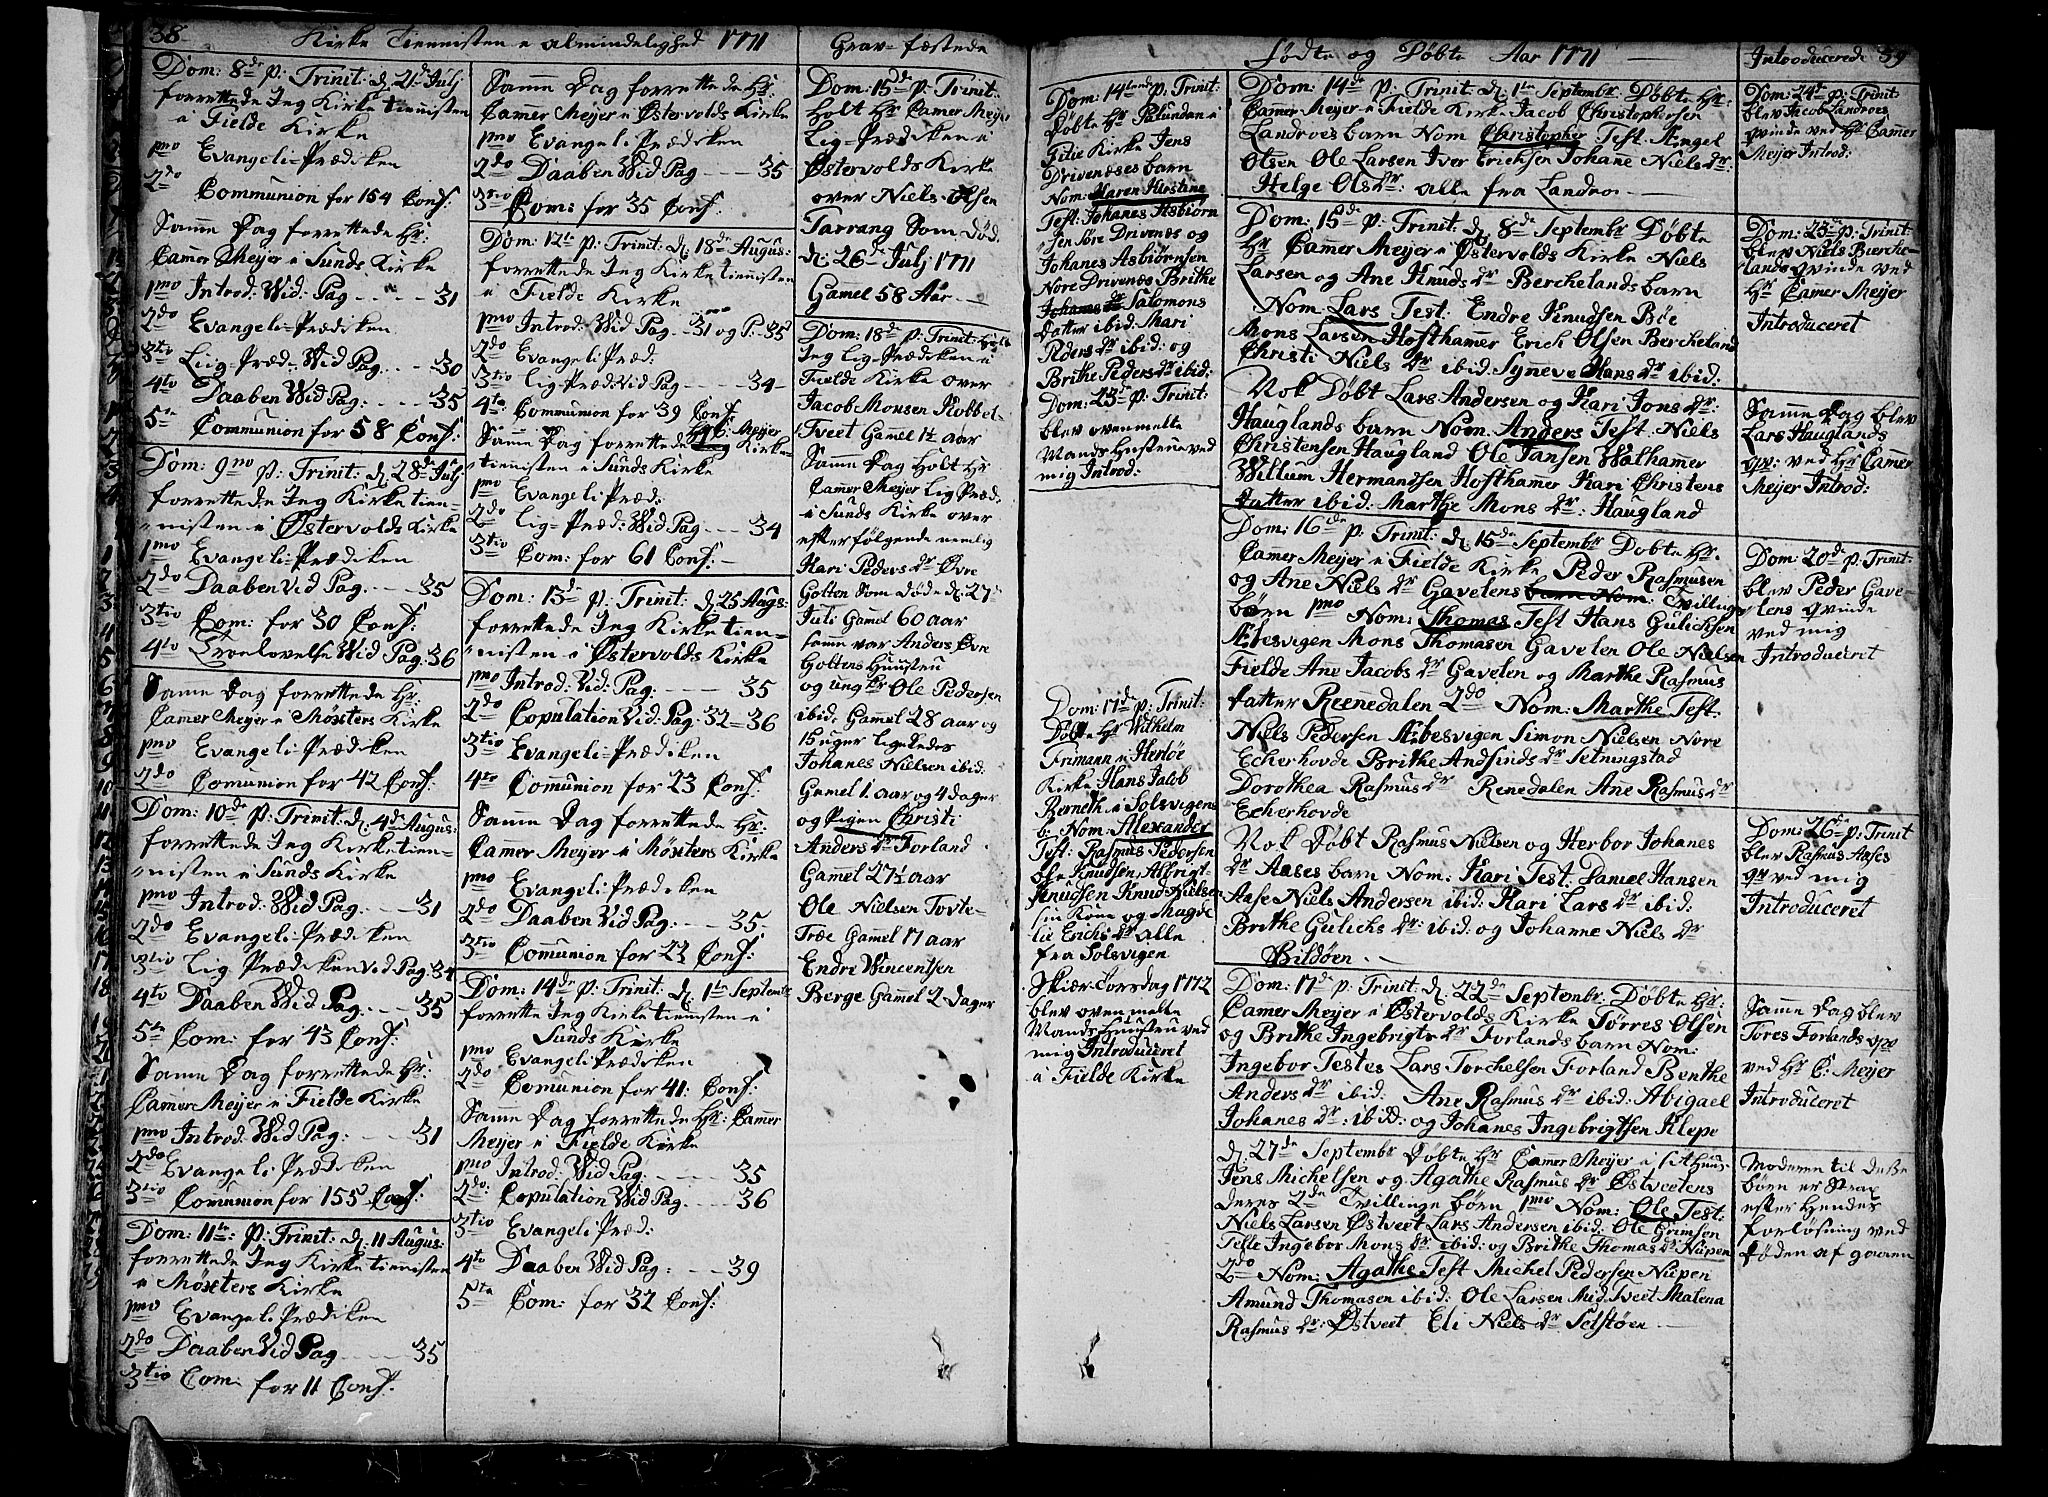 38
Kirke Tiennisten i almindelighed 1771
Dom: 8de p: Trinit: d. 21de Julj
forrettede Jeg Kirke tiennisten
i Fielde Kirke
pmo Evangeli-Prædiken
2do Communion for 154 Conf:
Samme Dag forrettede Hr:
Camer Meyer i Sunds Kirke
pmo Introd: Wid: Pag - - - - 31
2do Evangeli-Prædiken
3tio Liig-Præd: Wid Pag. - - - 30
4to Daaben Wid Pag: - - - - 35
5te Communion for 58 Conf:
Dom: 9no p: Trinit: d. 28de Julj
forrettede Jeg Kirke tien-
nisten i Østervolds Kirke
pmo Evangeli-Prædiken
2do Daaben Vid Pag. - - - 35
3tio Com: for 30 Conf:
4to Troelovelse Wid Pag: 36
Samme Dag forrettede Hr:
Camer Meyer i Møxters Kirke
pmo Evangeli-Prædiken
2do Comunion for 42 Conf:
Dom: 10de p: Trinit: d. 4de Augus:
forrettede Jeg Kirke tien-
nisten i Sunds Kirke
pmo Introd: Wid Pag. - - - 31
2do Evangeli-Prædiken
3tio Lig Prædiken Vid Pag: 34
4to Daaben Wid Pag. - - - 35
5te Com: for 43 Conf:
Samme Dag forrettede Hr:
Camer Meyer i Fielde Kirke
pmo Introd: Wid Pag: - - - 31
2do Evangeli Prædiken
3tio Communion for 155 Conf:
Dom: 11te: p: Trinit: d. 11 Augus:
forrettede Jeg Kirke tiennisten
i Møxters Kirke
pmo Evangeli-Prædiken
2do Daaben Vid Pag - - - - 35
3tio Com: for 11 Conf:
Samme Dag forrettede Hr:
Camer Meyer i Østervolds Kirke
pmo Evangeli-Prædiken
2do Daaben Wid Pag - - - 35
3tio Com: for 35 Conf:
Dom: 12te p: Trinit: d. 18de Augus:
forrettede Jeg Kirke tiennisten
i Fielde Kirke
pmo Introd: Wid Pag. - 31 og P. 35
2do Evangeli Præd:
3tio lig-Præd: Vid Pag - - - - 34
4to Communion for 39 Conf:
Samme Dag forrettede Hr C: Meyer Kirke-
tiennisten i Sunds Kirke
pmo Evangeli-Præd:
2do lig-Præd: Wid Pag. - - - 34
3tio Com: for 61 Conf:
Dom: 13de p: Trinit: d. 25 Augs:
forrettede Jeg Kirke tien-
nisten i Østervolds Kirke
pmo Introd: Vid: Pag: - - - - 35
2do Copulation Vid: Pag: 32 = 36
3tio Evangeli-Prædiken
4to Communion for 23 Conf:
Samme Dag forrettede Hr:
Camer Meyer i Møxters Kirke
pmo Evangeli-Prædiken
2do Daaben Vid Pag: - - - 35
3tio Communion for 23 Conf:
Dom: 14de p: Trinit: d. 1te Septembr
forrette Jeg Kirke tiennisten i
Sunds Kirke
pmo Evangeli-Prædiken
2do Comunion for 41: Conf:
Samme Dag forrettede Hr: Camer
Meyer i Fielde Kirke
pmo Introd: Wid Pag. - - - - 35
2do: Copulation Wid Pag: - - 36
3tio Evangeli-Præd:
4to Daaben Wid Pag: - - - 39
5te Com: for 32 Conf:
Grav-fæstede
Dom: 15de p: Trinit:
holt Hr Camer Meyer
Lig-Prædiken i
Østervolds Kirke
over Niels Olsen
Tarrang Som død
d: 26de Julj 1771
Gamel 58 Aar -
Dom: 18de p: Trinit: holt
Jeg Lig-Prædiken i
Fielde Kirke over
Jacob Monsen Kobbel-
Tveet Gamel 1½ aar
Samme Dag holt Hr
Camer Meyer lig Præd:
i Sunds Kirke over
efterfølgende nemlig
Kari Peders dr Øvre
Golten Som døde d: 27de
Juli Gamel 60 aar
samme var Anders Øvre
Goltens Huustru
og ung kr Ole Pedersen
ibid: Gamel 28 aar og
15 uger ligeledes
Johanes Nielsen ibid:
Gamel 1. aar og 4 dager
og Pigen Christi
Anders dr Forland
Gamel 27½ aar
Ole Nielsen Tofte-
Træe Gamel 17 aar
Endre Wincentsen
Berge Gamel 2 dager
Fødte og Døbte Aar 1771
Dom: 14tend p: Trinit:
Døbte Hr Paludan i
Zilie Kirke Jens
Drivenæses barn
Nom: Maren Kirstine
Test: Johanes Asbiørn
sen Søre Drivenæs og
Johanes Asbiørnsen
Nore Drivenæs Brithe
Salomons
Datter ibid: Mari
Peders dr ibid: og
Brithe Peders dr ibid:
Dom: 23de p: Trinit:
blev ovenmelte
Mands Hustrue ved
mig Introd:
Dom: 17de p: Trinit:
Døbte Hr Wilhelm
Frimann i Herløe
Kirke Hans Jacob
Berneth i Solsvigens
b: Nom: Alexander
Test: Rasmus Pedersen
Ole Knudsen, Albrigt
Knudsen Knud Nielsen
sin Kone og Magde
lie Erichs dr alle
fra Solsvigen
Skiær-Torsdag 1772
blev oven melte
Mands Huustru ved
mig Introduceret
i Fielde Kirke
Dom: 14de p: Trinit d: 1te Septembr: Døbte Hr:
Camer Meyer i Fielde Kirke Jacob Christophersen
Landroes barn Nom Christopher Test Stengel
Olsen Ole Larsen Iver Erichsen Johane Niels dr:
Helge Ols dr: alle fra Landroe
Dom: 15de p: Trinit: d: 8de Septembr Døbte
Hr Camer Meyer i Østervolds Kirke Niels
Larsen og Ane Knuds dr Berchelands barn
Nom Lars Test: Endre Knudsen Bøe
Mons Larsen Hofthamer Erich Olsen Bercheland
Christi Niels dr ibid Synneve Hans dr ibid:
Nok Døbt Lars Andersen og Kari Jons dr:
Hauglands barn Nom. Anders Test. Niels
Christensen Haugland Ole Jansen Walhamer
Willum Hermandsen Hofthamer Kari Christens
datter ibid: Marthe Mons dr: Haugland
Dom: 16de p: Trinit: d: 15de Septembr Døbte Hr.
Camer Meyer i Fielde Kirke Peder Rasmusen
og Ane Niels dr Gavelens barn Nom: Twilling
børn pmo Nom: Thomas Test Hans Gulichsen
Æbesvigen Mons Thomasen Gavelen Ole Nielsen
Fielde Ane Jacobs dr Gavelen og Marthe Rasmus
datter Reenedalen 2do Nom: Marthe Test.
Niels Pedersen Æbesvigen Simon Nielsen Nore
Echerhovde Brithe Andsinds dr Setningstad
Dorothea Rasmus dr Renedalen Ane Rasmus dr
Echerhovde
Nok Døbt Rasmus Nielsen og Herbor Johanes
dr Aases barn Nom: Kari Test: Daniel Hansen
Aase Niels Andersen ibid: Kari Lars dr ibid:
Brithe Gulichs dr: ibid: og Johanne Niels dr
Bildøen
Dom: 17de p: Trinit d: 22de Septembr: Døbte Hr:
Camer Meyer i Østervolds Kirke Tørres Olsen
og Brithe Ingebrigts dr Forlands barn Nom:
Ingebor Testes Lars Torchelsen Forland Benthe
Anders dr ibid: Ane Rasmus dr ibid: Abigael
Johanes dr: ibid: og Johanes Ingebrigtsen Klepe
d: 27de Septembr Døbte Hr Camer Meyer i
Jens Michelsen og Agathe Rasmus dr Østveetens
deres 2de Tvillinge børn pmo Nom: Ole Test:
Niels Larsen Østveet Lars Andersen ibid: Ole Grimsen
Telle Ingebor Mons dr ibid: og Brithe Thomas dr Nipen
2do Nom: Agathe Test Michel Pedersen Nipen
Amund Thomasen ibid: Ole Larsen Mid Tveet Malena
Rasmus dr: Østveet Eli Niels dr Selstøen
Introducerede 39
Dom: 24de p: Trinit
blev Jacob Landroes
qvinde ved Hr Camer
Meyer Introd:
Dom: 23de p: Trinit:
blev Niels Berche-
lands qvinde ved
Hr Camer Meyer
Introduceret
Samme Dag blev
Lars Hauglands
qv: ved Hr Camer
Meyer Introd:
Dom: 20de p: Trinit:
blev Peder Gave-
lens qvinde
ved mig
Introduceret
Dom: 26de p: Trinit
blev Rasmus Aases
qv ved mig
Introduceret
Samme Dag blev
Tores Forlands qv
ved Hr C: Meyer
Introduceret
Moderen til disse
børn er strax
efter hendes
forløsning ved
døden af gaaen